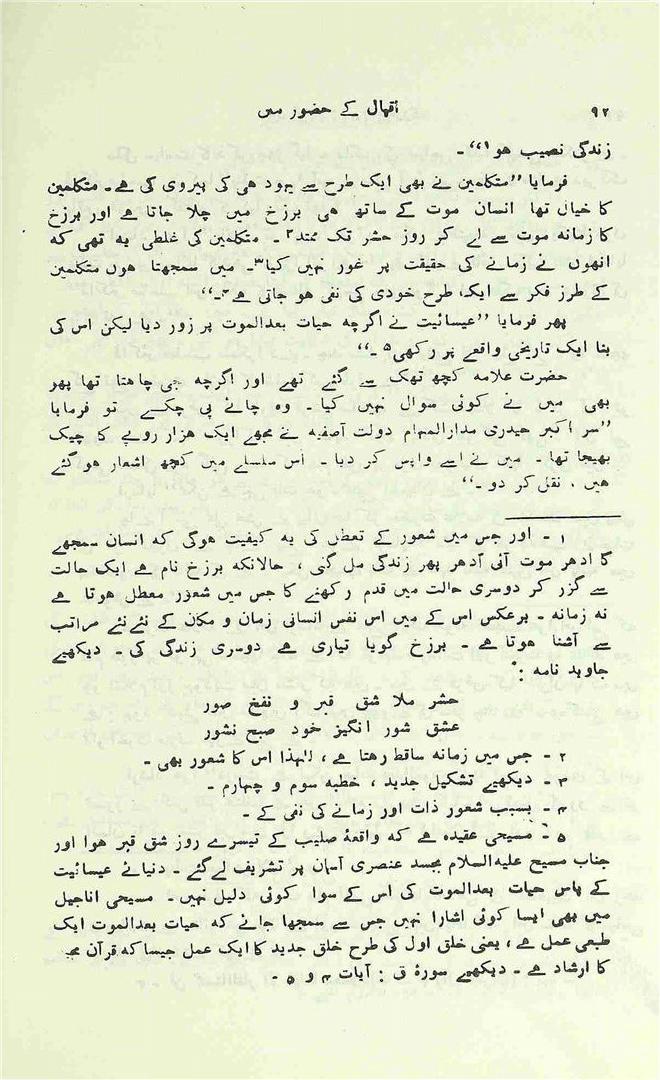 ۹۲
اقبال کے حضور میں
زندگی نصیب ہو۱‘‘۔
فرمایا ’’متکلمین نے بھی ایک طرح سے یہود ہی کی پیروی کی ہے۔ متکلمین
کا خیال تھا انسان موت کے ساتھ ہی برزخ میں چلا جاتا ہے اور برزخ
کا زمانہ موت سے لے کر روز حشر تک ممتد۲۔ متکلمین کی غلطی یہ تھی کہ
انھوں نے زمانے کی حقیقت پر غور نہیں کیا۳۔ میں سمجھتا ہوں متکلمین
کے طرز فکر سے ایک طرح خودی کی نفی ہو جاتی ہے۴۔‘‘
پھر فرمایا ’’عیسائیت نے اگرچہ حیات بعدالموت پر زور دیا لیکن اس کی
بنا ایک تاریخی واقعے پر رکھی۵۔‘‘
حضرت علامہ کچھ تھک سے گئے تھے اور اگرچہ جی چاہتا تھا پھر
بھی میں نے کوئی سوال نہیں کیا۔ وہ چائے پی چکے تو فرمایا
’’سر اکبر حیدری مدارالمہام دولت آصفیہ نے مجھے ایک ہزار روپے کا چیک
بھیجا تھا۔ میں نے اسے واپس کر دیا۔ اس سلسلے میں کچھ اشعار ہو گئے
ہیں، نقل کر دو۔‘‘
۱ - اور جس میں شعور کے تعطل کی یہ کیفیت ہوگی کہ انسان سمجھے
گا ادھر موت آئی اُدھر پھر زندگی مل گئی، حالانکہ برزخ نام ہے ایک حالت
سے گزر کر دوسری حالت میں قدم رکھنے کا جس میں شعور معطل ہوتا ہے
نہ زمانہ۔ برعکس اس کے میں اس نفس انسانی زمان و مکان کے نئے نئے مراتب
سے آشنا ہوتا ہے۔ برزخ گویا تیاری ہے دوسری زندگی کی۔ دیکھیے
جاوید نامہ:
حشر ملا شق قبر و نفخ صور
عشق شور انگیز خود صبح نشور
۲ - جس میں زمانہ ساقط رہتا ہے، لہٰذا اس کا شعور بھی۔
۳ - دیکھیے تشکیل جدید، خطبہ سوم و چہارم۔
۴ - بسبب شعور ذات اور زمانے کی نفی کے۔
۵ - مسیحی عقیدہ ہے کہ واقعۂ صلیب کے تیسرے روز شق قبر ہوا اور
جناب مسیح علیہ‌السلام بجسد عنصری آسمان پر تشریف لے گئے۔ دنیائے عیسائیت
کے پاس حیات بعدالموت کی اس کے سوا کوئی دلیل نہیں۔ مسیحی اناجیل
میں بھی ایسا کوئی اشارا نہیں جس سے سمجھا جائے کہ حیات بعدالموت ایک
طبیعی عمل ہے، یعنی خلق اول کی طرح خلق جدید کا ایک عمل جیسا کہ قرآن
کا ارشاد ہے۔ دیکھیے سورۂ ق: آیات ۴ و ۵۔